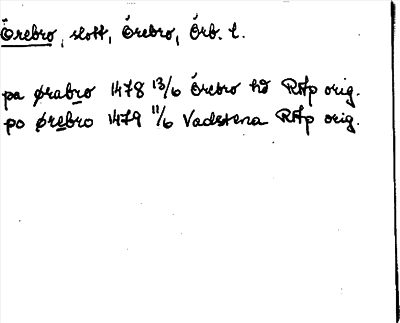 Örebro, slott, Örebro, Örb. l.
pa ørabro 1478 13/6 Örebro hd RAp orig.
po ørebro 1479 11/6 Vadstena RAp orig.